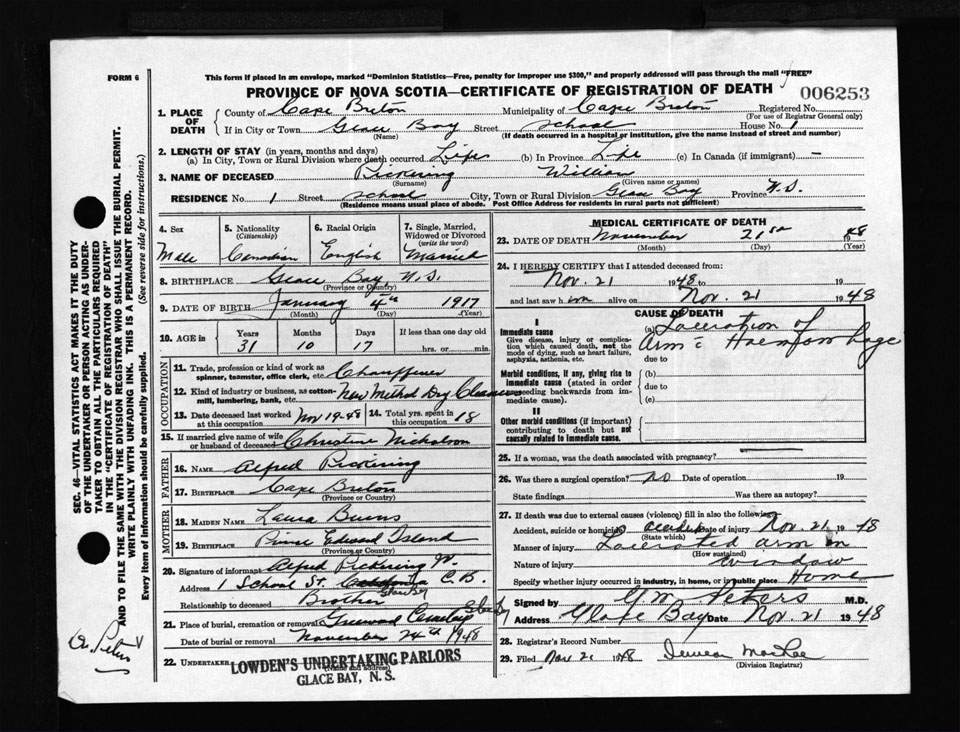 FORM 6
This form if placed in an envelope, marked "Dominion Statistics—Free, penalty for improper use $300," and properly addressed will pass through the mail "FREE"
PROVINCE OF NOVA SCOTIA—CERTIFICATE OF REGISTRATION OF DEATH 006253
1. PLACE OF DEATH
County of Cape Breton Municipality of Cape Breton Registered No.
(For use of Registrar General only)
If in City or Town Glace Bay Street School House No. 1
(Name) (If death occurred in a hospital or institution, give the name instead of street and number)
2. LENGTH OF STAY (in years, months and days)
(a) In City, Town or Rural Division where death occurred Life (b) In Province Life (c) In Canada (if immigrant) —
3. NAME OF DECEASED Pickering William
(Surname) (Given name or names)
RESIDENCE No. 1 Street School City, Town or Rural Division Glace Bay Province N.S.
(Residence means usual place of abode. Post Office Address for residents in rural parts not sufficient)
4. Sex Male
5. Nationality (Citizenship) Canadian
6. Racial Origin English
7. Single, Married, Widowed or Divorced (write the word) Married
8. BIRTHPLACE Glace Bay N.S.
(Province or Country)
9. DATE OF BIRTH January 4th 1917
(Month) (Day) (Year)
10. AGE in Years Months Days If less than one day old
31 10 17 hrs. or min.
OCCUPATION
11. Trade, profession or kind of work as spinner, teamster, office clerk, etc. Chauffeur
12. Kind of industry or business, as cotton-mill, lumbering, bank, etc. New Method Dry Cleaners
13. Date deceased last worked at this occupation Nov 19-48
14. Total yrs. spent in this occupation 18
15. If married give name of wife or husband of deceased Christine Nicholson
FATHER
16. NAME Alfred Pickering
17. BIRTHPLACE Cape Breton
(Province or Country)
MOTHER
18. MAIDEN NAME Laura Burns
19. BIRTHPLACE Prince Edward Island
(Province or Country)
20. Signature of informant Alfred Pickering Jr.
Address 1 School St. C.B.
Glace Bay
Relationship to deceased Brother
21. Place of burial, cremation or removal Greenwood Cemetery Glace Bay
Date of burial or removal November 24th 1948
22. UNDERTAKER
(Name and address)
LOWDEN'S UNDERTAKING PARLORS
GLACE BAY, N. S.
MEDICAL CERTIFICATE OF DEATH
23. DATE OF DEATH November 21st 1948
(Month) (Day)
24. I HEREBY CERTIFY that I attended deceased from:
Nov. 21 1948 to 19
and last saw him alive on Nov. 21 1948
CAUSE OF DEATH
I
Immediate cause
Give disease, injury or complication which caused death, not the mode of dying, such as heart failure, asphyxia, asthenia, etc.
(a) Laceration of
Arm c Haemorrhage
due to
Morbid conditions, if any, giving rise to immediate cause (stated in order proceeding backwards from immediate cause).
(b)
due to
(c)
II
Other morbid conditions (if important) contributing to death but not causally related to immediate cause.
25. If a woman, was the death associated with pregnancy?
26. Was there a surgical operation? No Date of operation 19
State findings Was there an autopsy?
27. If death was due to external causes (violence) fill in also the following:
Accident, suicide or homicide? Accident Date of injury Nov. 21 1948
(State which)
Manner of injury Lacerated arm in
(How sustained)
Nature of injury window
Specify whether injury occurred in industry, in home, or in public place Home
Signed by Peters M.D.
Address Glace Bay Date Nov. 21 1948
28. Registrar's Record Number
29. Filed Nov 21 1948
(Division Registrar)
SEC. 46—VITAL STATISTICS ACT MAKES IT THE DUTY
OF THE UNDERTAKER OR PERSON ACTING AS UNDER-
TAKER TO OBTAIN ALL THE PARTICULARS REQUIRED
IN THE "CERTIFICATE OF REGISTRATION OF DEATH"
AND TO FILE THE SAME WITH THE DIVISION REGISTRAR WHO SHALL ISSUE THE BURIAL PERMIT.
WRITE PLAINLY WITH UNFADING INK. THIS IS A PERMANENT RECORD.
Every item of information should be carefully supplied. (See reverse side for instructions.)